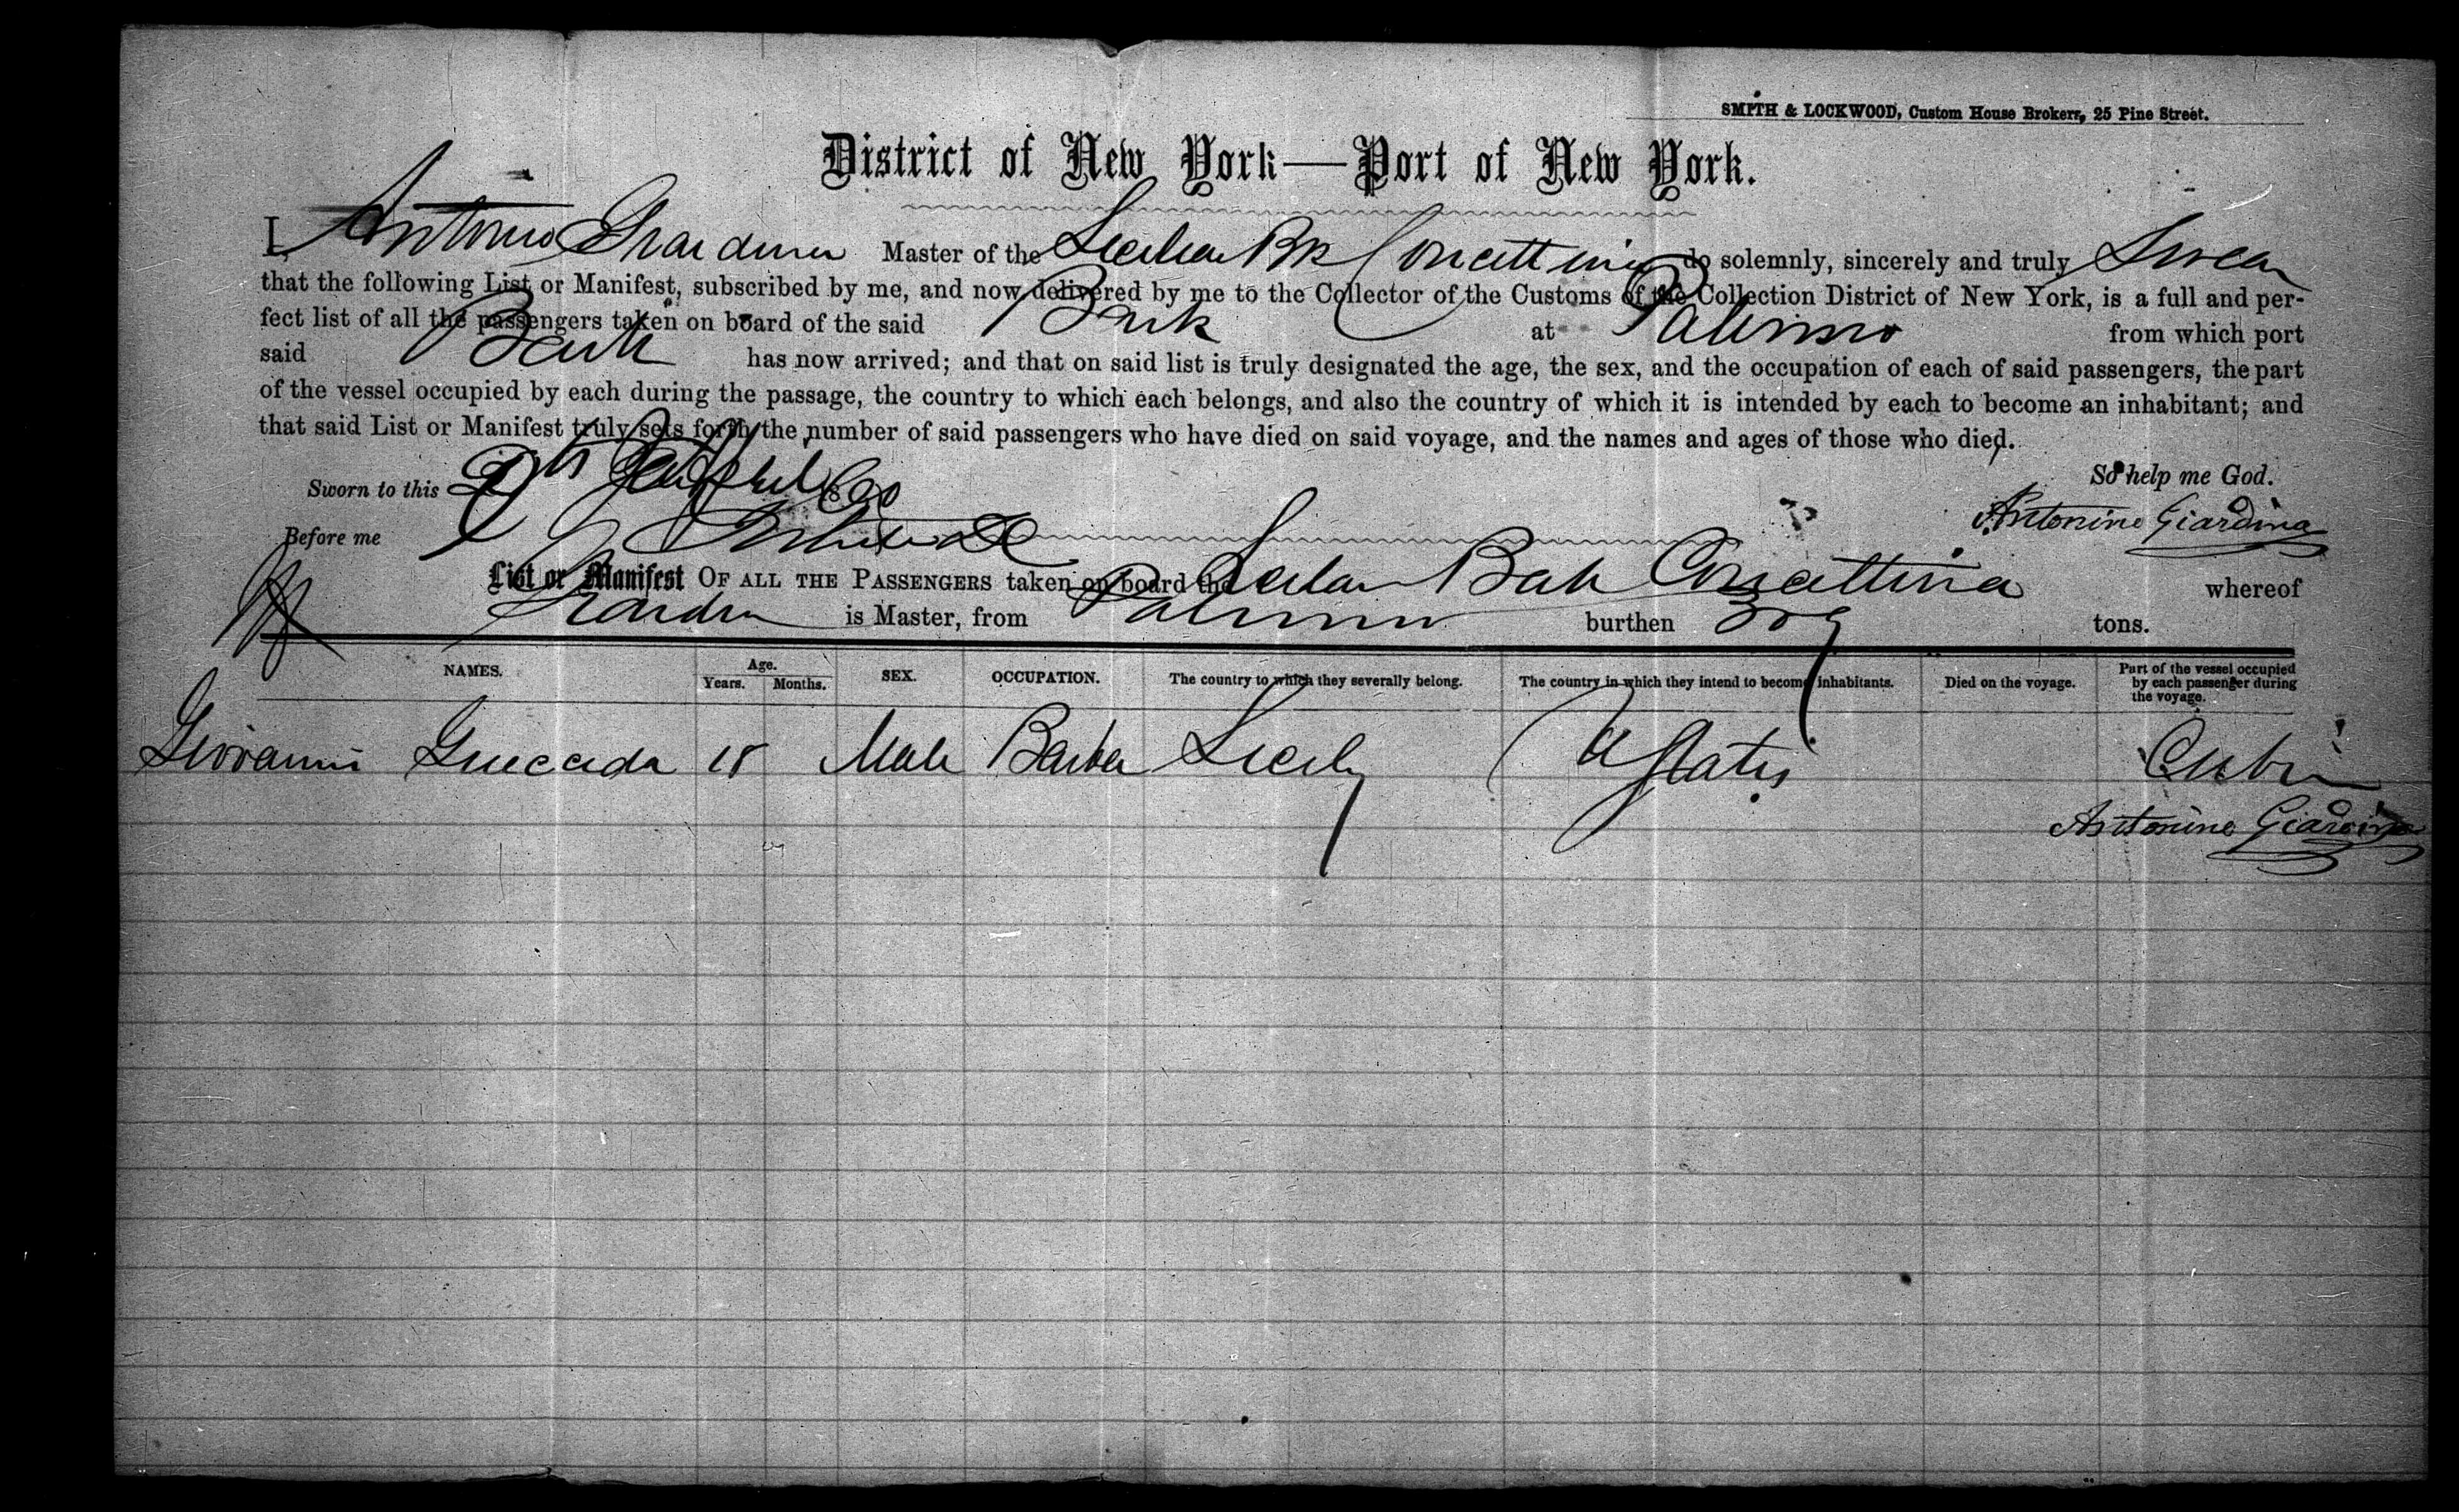 SMITH & LOCKWOOD, Custom House Brokers, 25 Pine Street.
District of New York—Port of New York.
I, Antonino Giardina Master of the Sicilian Bk Concettina do solemnly, sincerely and truly Swear
that the following List or Manifest, subscribed by me, and now delivered by me to the Collector of the Customs of the Collection District of New York, is a full and per-
fect list of all the passengers taken on board of the said Bark at Palermo from which port
said Bark has now arrived; and that on said list is truly designated the age, the sex, and the occupation of each of said passengers, the part
of the vessel occupied by each during the passage, the country to which each belongs, and also the country of which it is intended by each to become an inhabitant; and
that said List or Manifest truly sets forth the number of said passengers who have died on said voyage, and the names and ages of those who died.
So help me God.
Sworn to this
Antonino Giardina
Before me
List or Manifest OF ALL THE PASSENGERS taken on board the Sicilian Bark Concettina whereof
Giardina is Master, from Palermo burthen 309 tons.
NAMES. Age. Years. Months. SEX. OCCUPATION. The country to which they severally belong. The country in which they intend to become inhabitants. Died on the voyage. Part of the vessel occupied by each passenger during the voyage.
Giovanni Guccida 18 Male Barber Sicily U States Cabin
Antonino Giardina